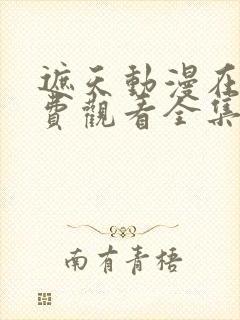 遮天動漫在
費觀看全集
南有青梧